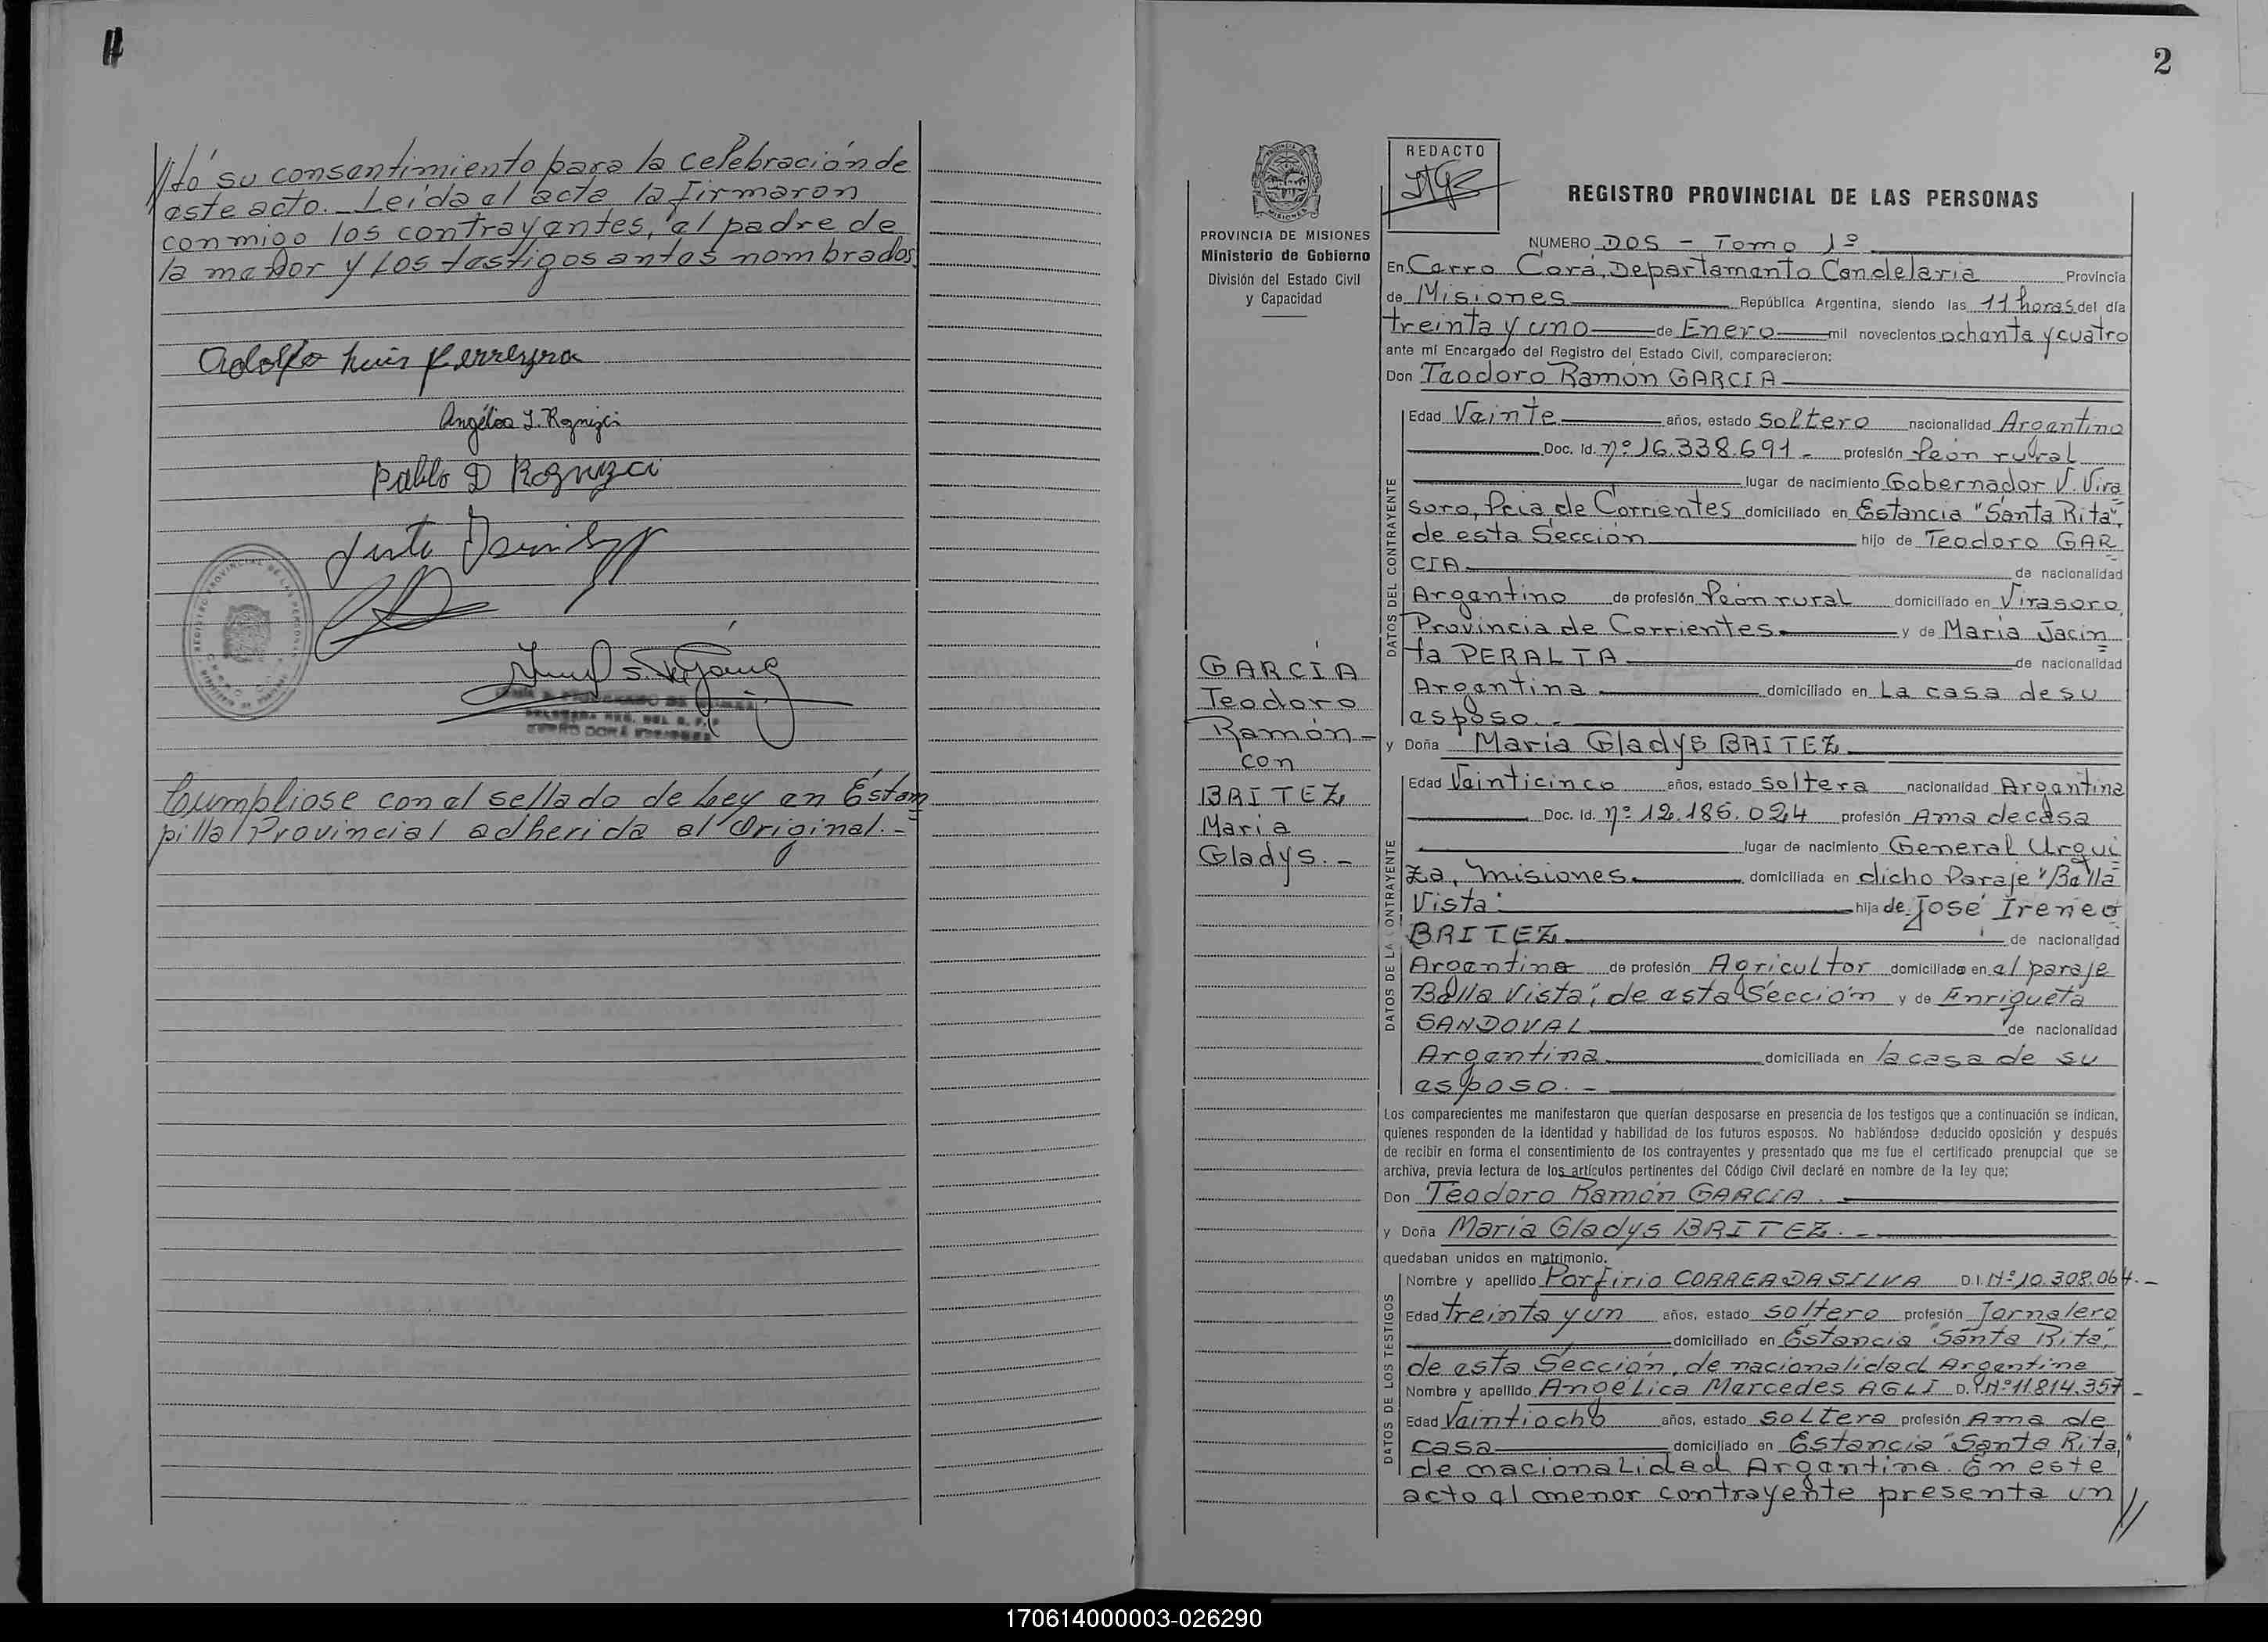 //tó su consentimiento para la celebración de
este acto._ Leída el acta la firmaron
conmigo los contrayentes, el padre de
la menor y los testigos antes nombrados.
Adolfo Luis Ferreyra
Angélica
Pablo D
Cumpliose con el sellado de Ley en Estam
pilla Provincial adherida al Original.-
2
REDACTO
PROVINCIA DE MISIONES
Ministerio de Gobierno
División del Estado Civil
y Capacidad
GARCÍA
Teodoro
Ramón-
con
BRITEZ
María
Gladys.-
REGISTRO PROVINCIAL DE LAS PERSONAS
NUMERO DOS - Tomo 1º
En Cerro Corá, Departamento Candelaria Provincia
de Misiones República Argentina, siendo las 11 horas del día
treinta y uno de Enero mil novecientos ochenta y cuatro
ante mí Encargado del Registro del Estado Civil, comparecieron:
Don Teodoro Ramón GARCIA
DATOS DEL CONTRAYENTE
Edad Veinte años, estado Soltero nacionalidad Argentino
Doc. Id. nº 16.338.691.- profesión Peón rural
lugar de nacimiento Gobernador V. Vira
soro, Pcia de Corrientes domiciliado en Estancia "Santa Rita",
de esta Sección hijo de Teodoro GAR
CIA de nacionalidad
Argentino de profesión Peón rural domiciliado en Virasoro,
Provincia de Corrientes y de María Jacin
ta PERALTA de nacionalidad
Argentina domiciliado en La casa de su
esposo.-
y Doña María Gladys BRITEZ
DATOS DE LA CONTRAYENTE
Edad Veinticinco años, estado Soltera nacionalidad Argentina
Doc. Id. nº 12.186.024 profesión Ama de casa
lugar de nacimiento General Urqui
za, Misiones. domiciliada en dicho Paraje "Bella
Vista" hija de José Ireneo
BRITEZ de nacionalidad
Argentino de profesión Agricultor domiciliado en el paraje
Bella Vista", de esta Sección y de Enriqueta
SANDOVAL de nacionalidad
Argentina domiciliada en la casa de su
esposo.-
Los comparecientes me manifestaron que querían desposarse en presencia de los testigos que a continuación se indican,
quienes responden de la identidad y habilidad de los futuros esposos. No habiéndose deducido oposición y después
de recibir en forma el consentimiento de los contrayentes y presentado que me fue el certificado prenupcial que se
archiva, previa lectura de los artículos pertinentes del Código Civil declaré en nombre de la ley que;
Don Teodoro Ramón GARCIA.
y Doña María Gladys BRITEZ.-
quedaban unidos en matrimonio.
DATOS DE LOS TESTIGOS
Nombre y apellido Porfirio CORREA DA SILVA D.I. Nº 10.308.064.-
Edad treinta y un años, estado soltero profesión Jornalero
domiciliado en Estancia "Santa Rita",
de esta Sección, de nacionalidad Argentina
Nombre y apellido Angélica Mercedes AGLI D.I. Nº 11.814.357-
Edad Veintiocho años, estado soltera profesión Ama de
casa domiciliado en Estancia "Santa Rita,"
de nacionalidad Argentina. En este
acto el menor contrayente presenta un//
170614000003-026290